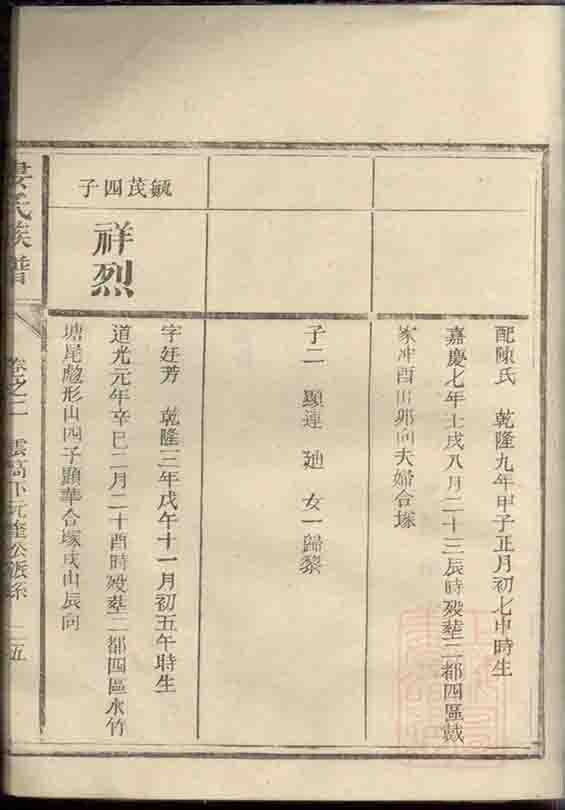 配陳氏 乾隆九年甲子正月初七申時生
嘉慶七年壬戌八月二十三辰時歿塟二都四區戴
家冲酉山卯向夫婦合塚
子二 顯連 廸 女一歸黎
毓茂四子
祥烈
字廷芳 乾隆三年戊午十一月初五午時生
道光元年辛巳二月二十酉時歿塟二都四區水竹
塘尾彪形山四子顯華合塚戌山辰向
氏族譜
卷之二 雲高下元達公派系 二五